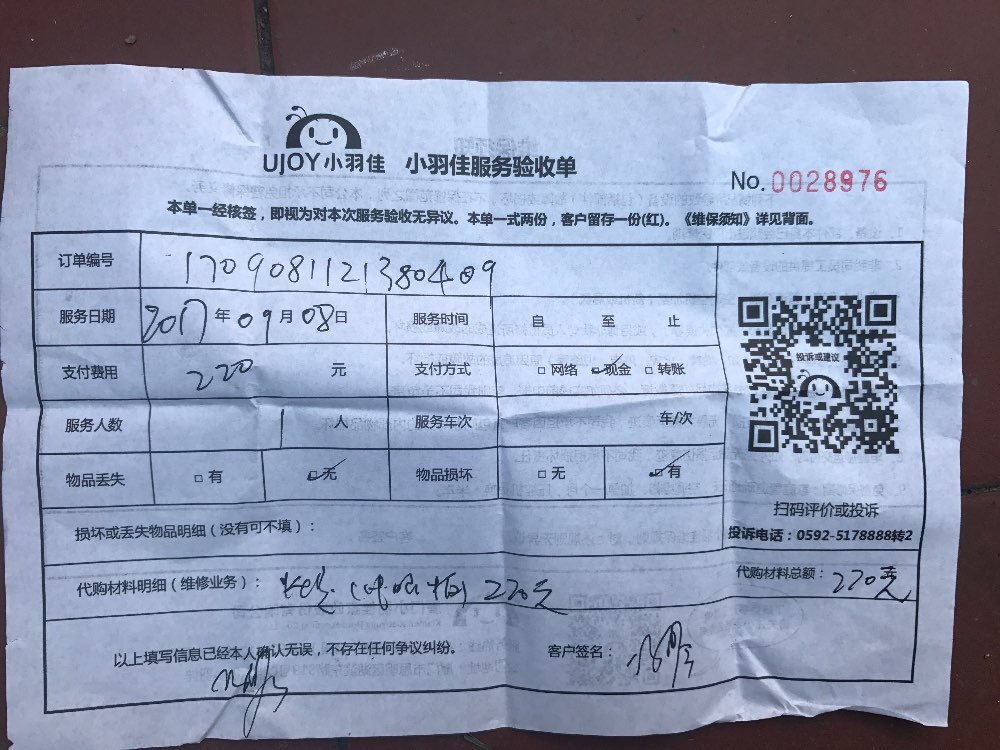 UJOY小羽佳 小羽佳服务验收单
No.0028976
本单一经核签，即视为对本次服务验收无异议。本单一式两份，客户留存一份(红)。《维保须知》详见背面。
订单编号 170908112138 0409
服务日期 2017年09月08日 服务时间 自 至 止
支付费用 220 元 支付方式 □网络 ☑现金 □转账
服务人数 1 人 服务车次 车/次
物品丢失 □有 ☑无 物品损坏 □无 ☑有
投诉或建议
扫码评价或投诉
投诉电话：0592-5178888转2
损坏或丢失物品明细（没有可不填）：
代购材料明细（维修业务）： 220元
代购材料总额：220元
以上填写信息已经本人确认无误，不存在任何争议纠纷。 客户签名：